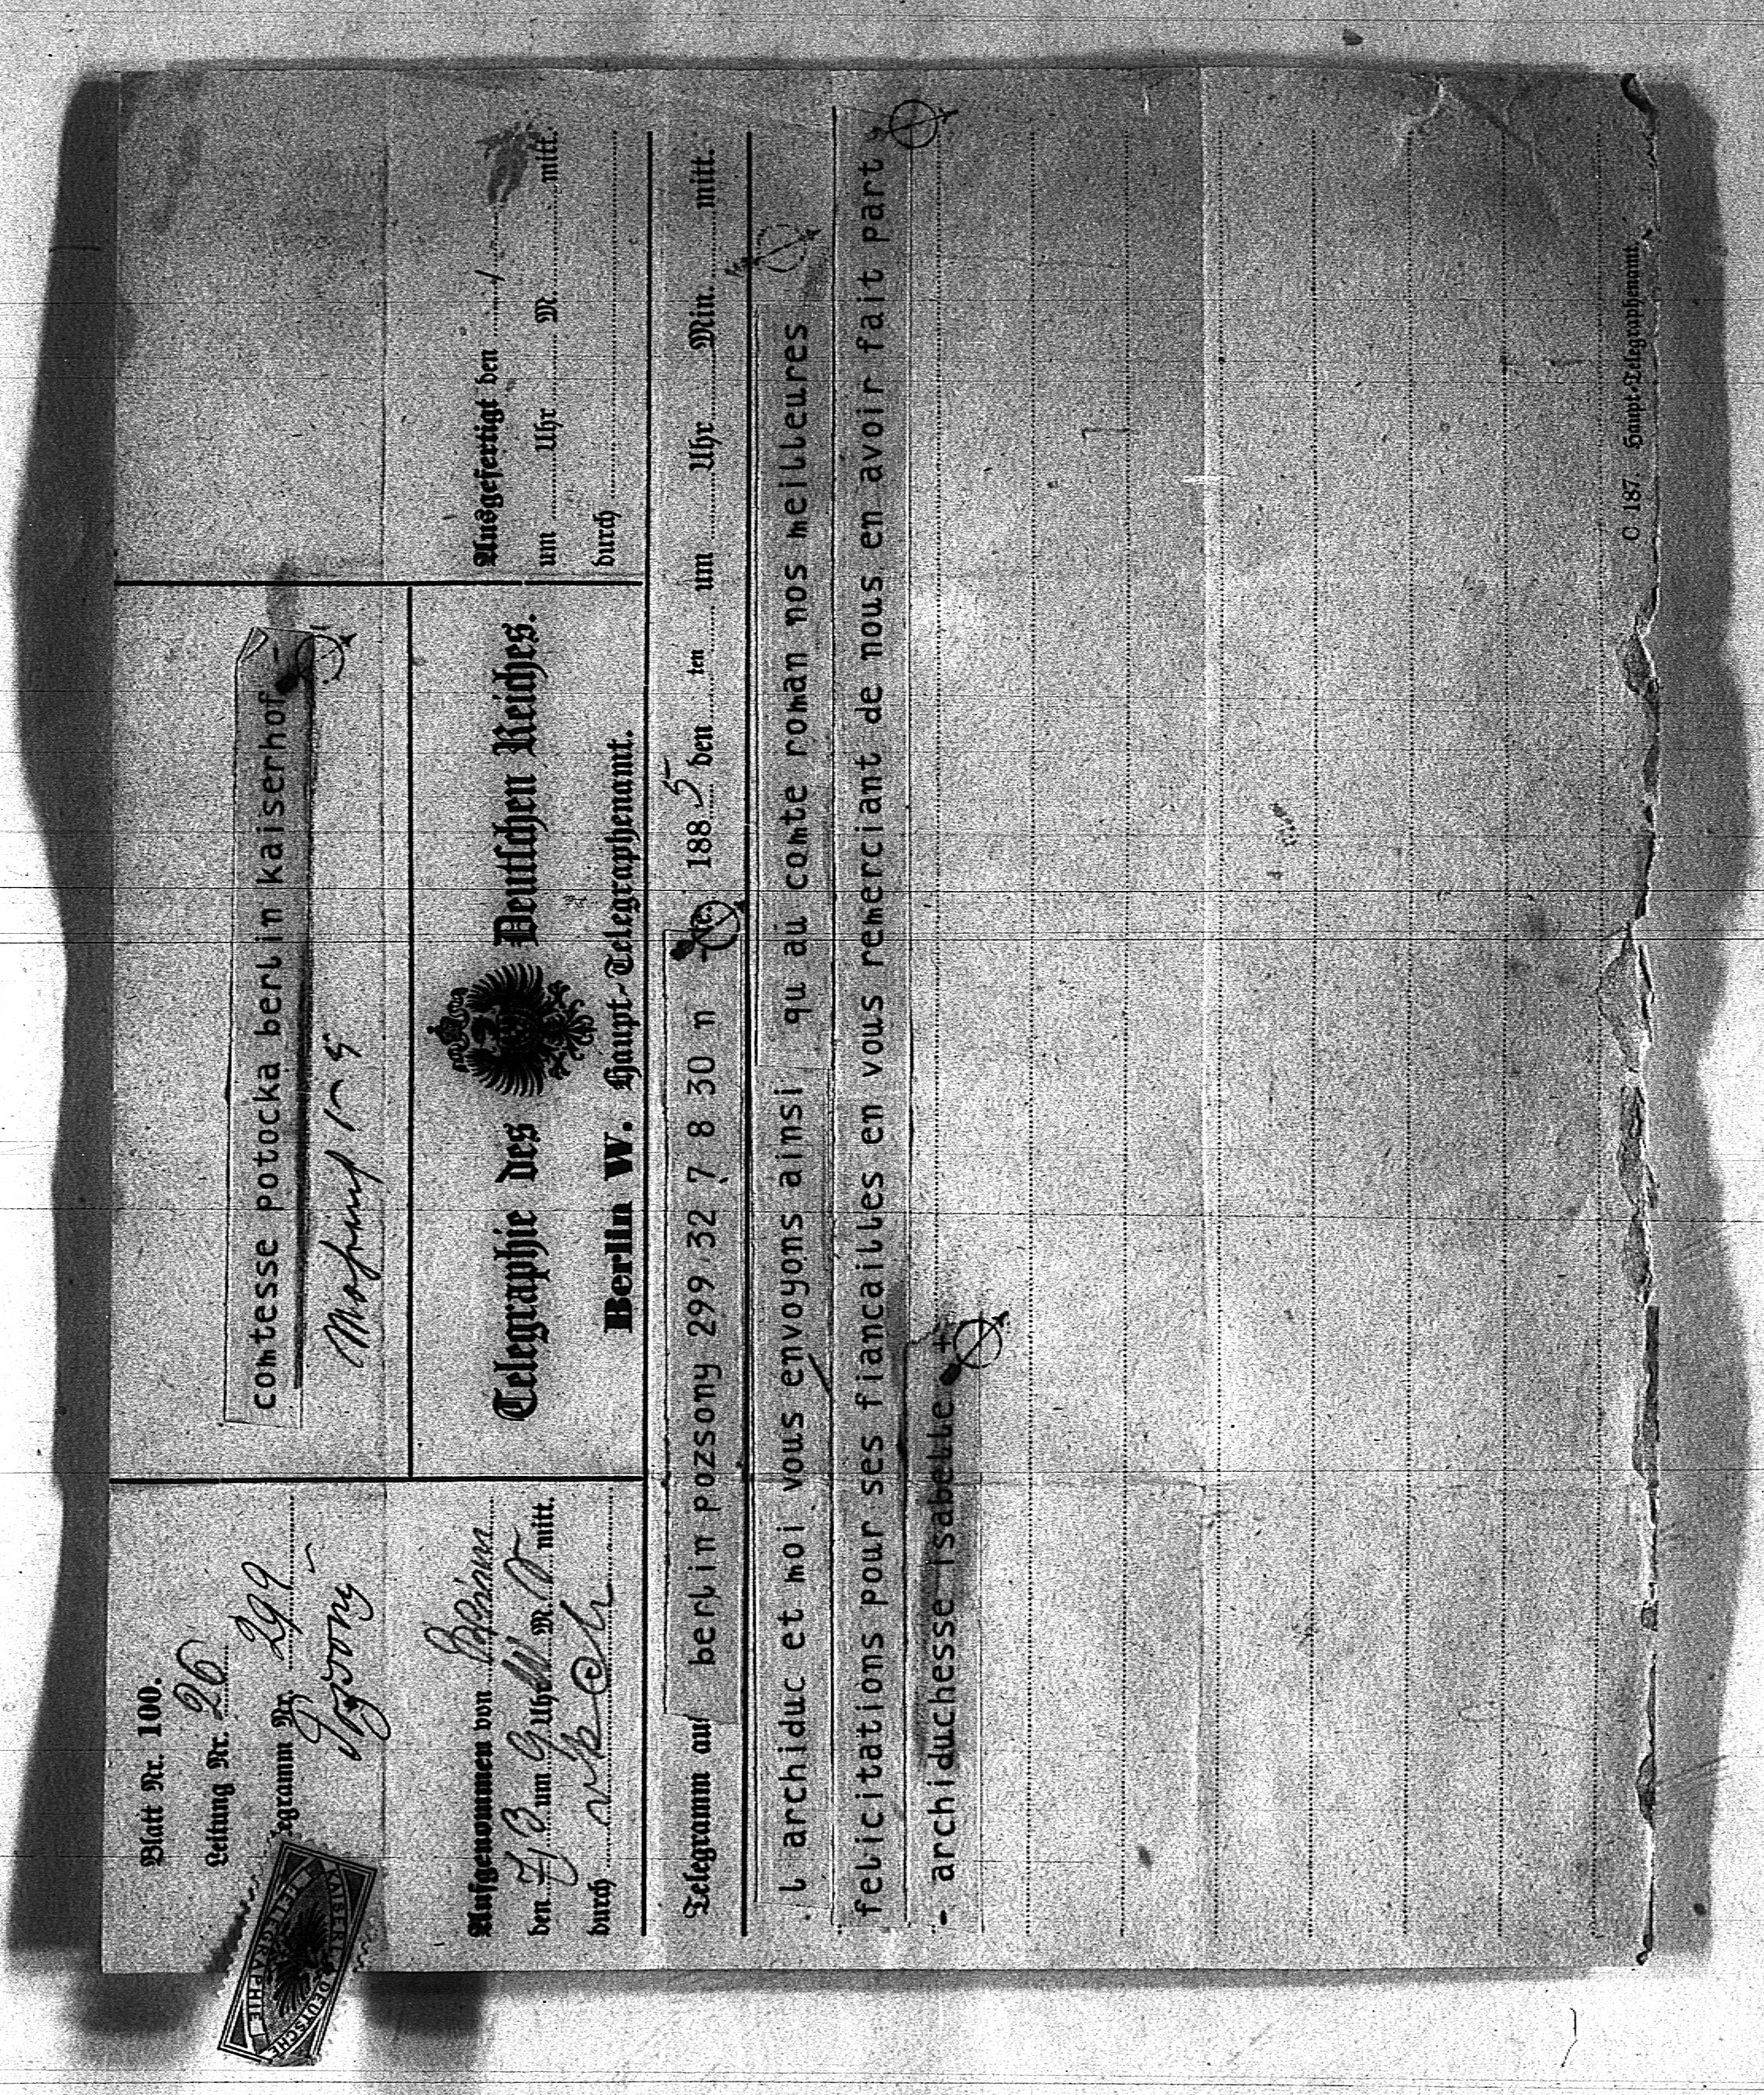 Blatt Nr. 100.
Leitung Nr. 26
Telegramm Nr. 299
Pozsony
KAISERL. DEUTSCHE
TELEGRAPHIE
comtesse potocka berlin kaiserhof -
Aufgenommen von
den 7/3 um 9 Uhr M. mitt.
durch
Telegraphie des Deutschen Reiches.
Berlin W. Haupt-Telegraphenamt.
Ausgefertigt den
um Uhr M. mitt.
durch
Telegramm aus berlin pozsony 299 32 7 8 30 n Nr. 1885 den ten um Uhr Min. mitt.
l archiduc et moi vous envoyons ainsi qu au comte roman nos meilleures
felicitations pour ses fiancailles en vous remerciant de nous en avoir fait part
- archiduchesse isabelle +
C 187. Haupt-Telegraphenamt.